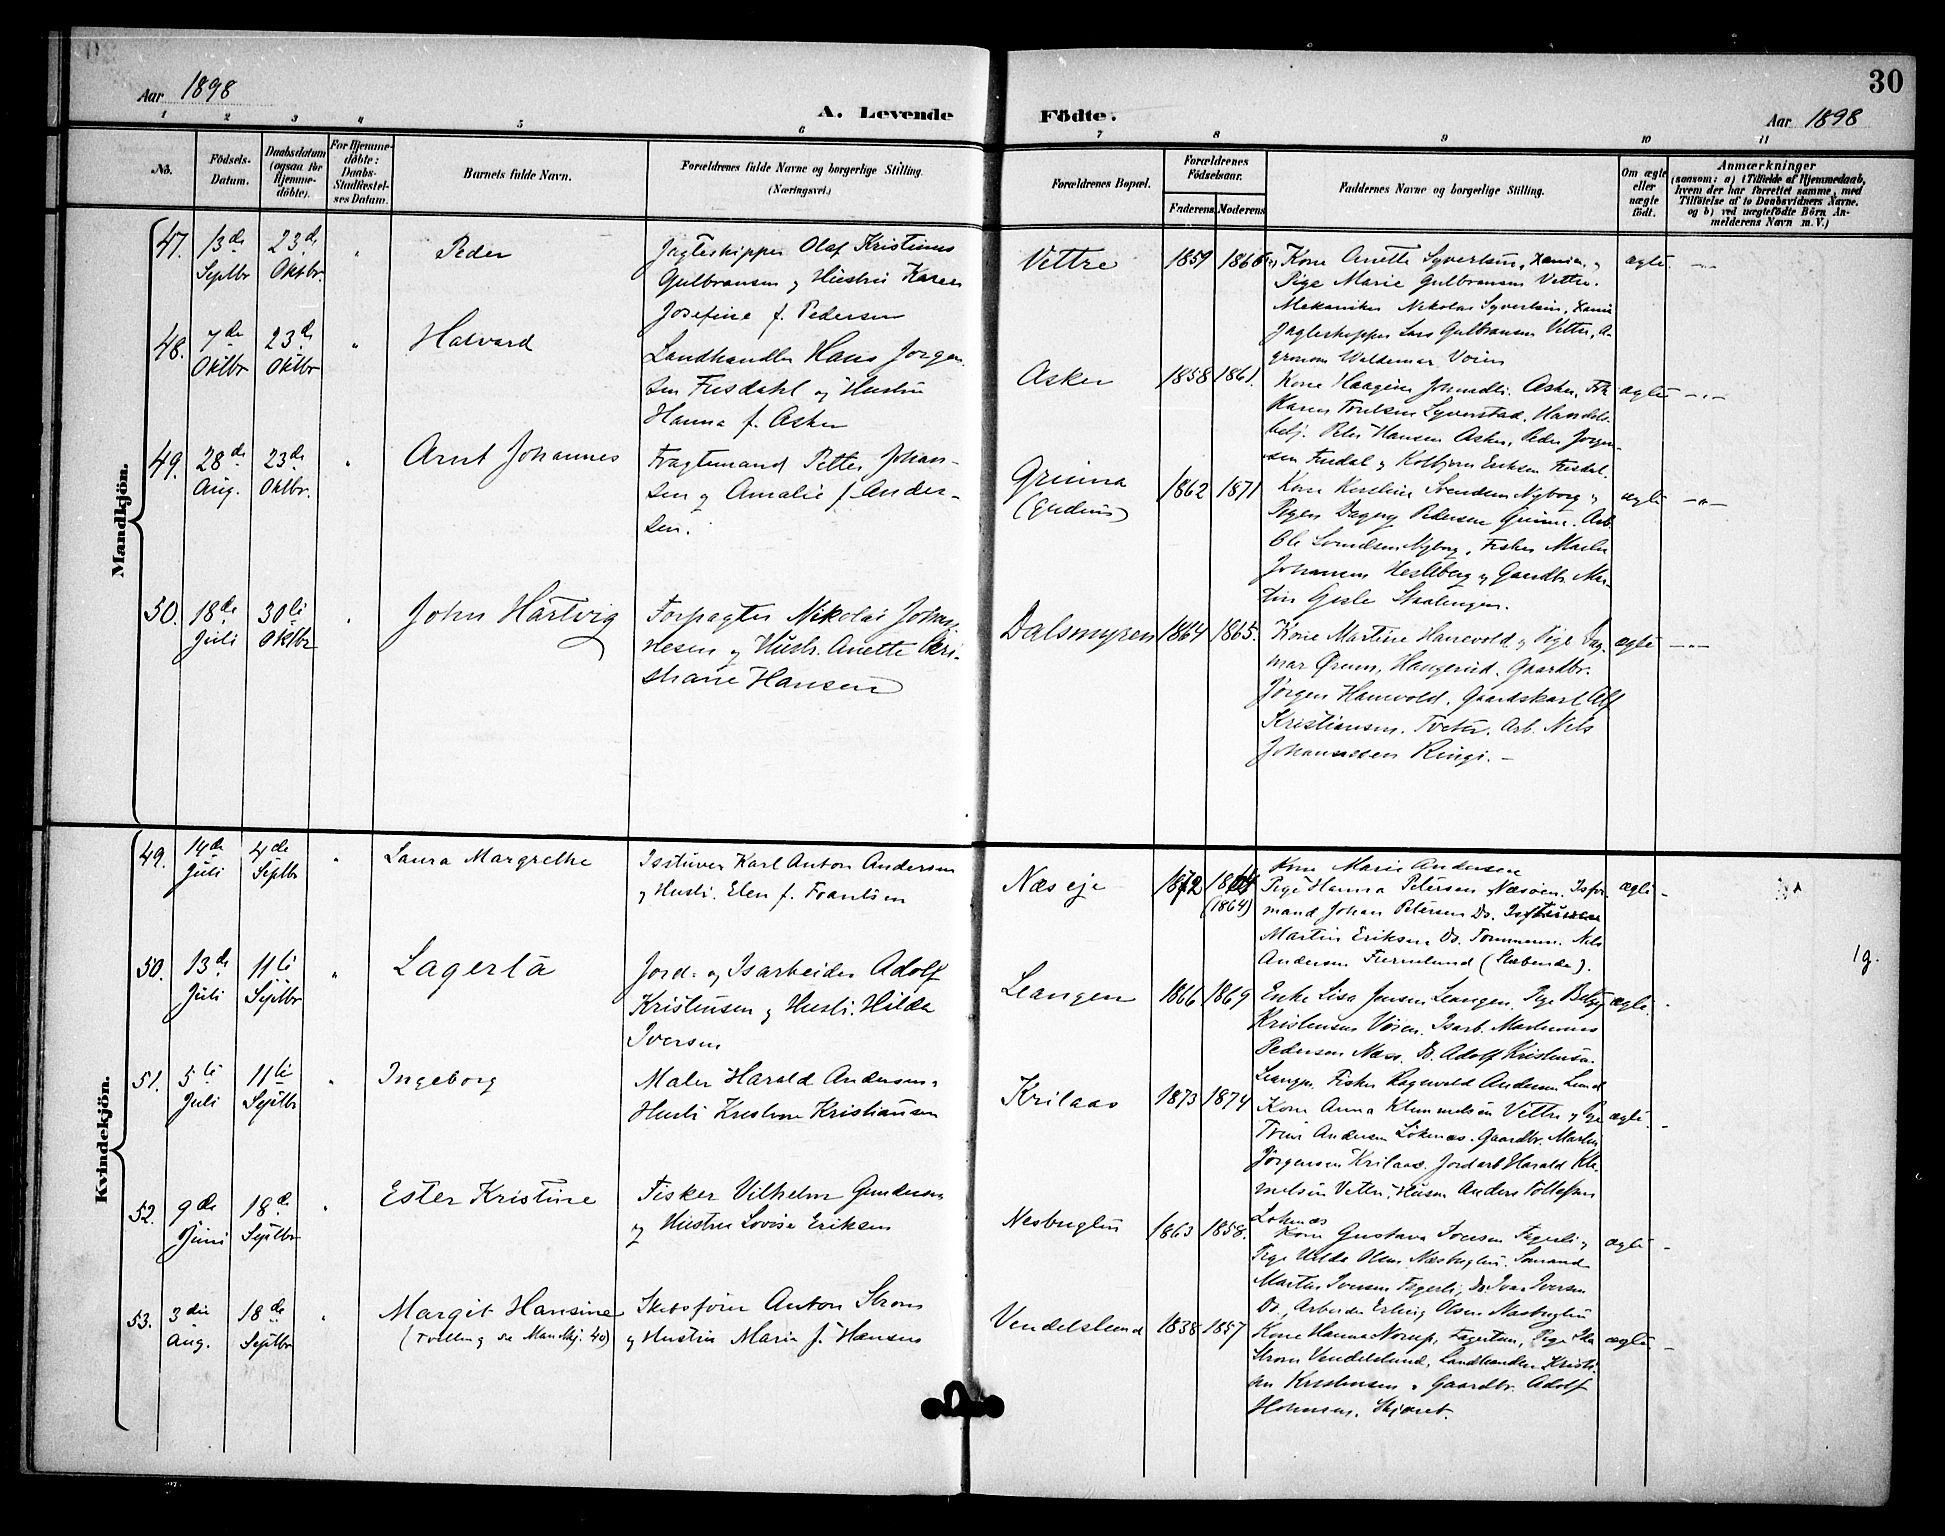 30
Aar 1898
A. Levende Födte.
Aar 1898
1 2 3 4 5 6 7 8 9 10 11
No.
Födsels-Datum.
Daabsdatum (ogsaa för Hjemme-döbte).
For Hjemme-döbte: Daabs-Stadfæstel-ses Datum.
Barnets fulde Navn.
Forældrenes fulde Navne og borgerlige Stilling. (Næringsvei.)
Forældrenes Bopæl.
Forældrenes Födselsaar.
Faderens Moderens
Faddernes Navne og borgerlige Stilling.
Om ægte eller uægte födt.
Anmærkninger
(saasom: a) i Tilfælde af Hjemmedaab,
hvem der har forrettet samme, med
Tilföielse af to Daabsvidners Navne.
og b) ved uægtefödte Börn An-
melderens Navn m. V.)
Mandkjön.
47. 13de Septbr 23de Oktbr. " Peder
Jagteskipper Olaf Kristinus
Gulbransen og Hustru Karen
Josefine f. Pedersen
Vettre 1859 1866
Kone Anette Syvertsen, Xania, og
Pige Marie Gulbransen Vettre.
Mekaniker Nikolai Syvertsen, Xania
Jagteskipper Lars Gulbransen Vettre, A-
gronom Waldemar Voien
ægte. -"-
48. 7de Oktbr 23de Oktbr " Halvard
Landhandler Hans Jörgen-
sen Fusdahl og Hustru
Hanna f. Asker
Asker 1858 1861.
Kone Haagine Asker,
Karen Syverstad, Handels-
betj. Peter Hansen Asker, Peder Jörgen-
sen Fusdal og Kolbjörn Eriksen Fusdal.
ægte -"-
49. 28de Aug. 23de Oktbr. " Arnt Johannes
Fragtemand Petter Johan-
sen og Amalie f. Ander-
sen.
Grinna 1862 1871
Kone Kirstine Svendsen Nyborg og
Pigen Dagny Pedersen Grinna. Arb.
Ole Svendsen Nyborg, Fisker Martin
Johansen Hesteberg og Gaardbr. Mar-
tin
ægte -"-
50. 18de Juli 30te Oktbr " John Hartvig
Forpagter Nikolai Johan-
nesen og Hustr. Anette Kri-
stiane Hansen
Dalsmyren 1864 1865.
Kone Martine Hanevold og Pige Dag-
mar Ørum, Haugerud. Gaardbr.
Jörgen Hanevold. Gaardskarl Alf
Kristiansen. Tveter. Arb. Nils
Johannessen Ringi. -
ægte -"-
Kvindekjön.
49. 14de Juli 4de Septbr " Laura Margrethe
Isstuver Karl Anton Andersen
og Hustr. Elen f. Frantsen
Næs eje 1872 1864 (1864)
Kone Marie Andersen
Pige Hanna Petersen Næsöen. Isfor-
mand Johan Petersen Do. Isstuver
Martin Eriksen Do. Tömmerm. Nils
Andersen (Slæbende).
ægte -
50. 13de Juli 11te Septbr " Lagerta
Jord- og Isarbeider Adolf
Kristensen og Hustr. Hilda
Iversen
Leangen 1866 1869
Enke Lisa Jensen Leangen. Pige Betzy
Kristensen Vöien. Isarb. Martinus
Pedersen Næss. Do. Adolf Kristensen
Leangen. Fisker Ragnvald Andersen Lund
ægte.
1g.
51. 5te Juli 11te Septbr " Ingeborg
Maler Harald Andersen og
Hustr. Kristine Kristiansen
Krilaas 1873 1874
Kone Anna Klemmetsen Vettre og Pige
Trine Andersen Löknæs. Gaardbr. Martin
Jörgensen Krilaas. Jordarb Harald Kle-
metsen Vettre. Husm Anders Tollefsen
Löknæs
ægte. -
52. 9de Juni 18de Septbr " Ester Kristine
Fisker Vilhelm Gundersen
og Hustru Lovise Eriksen
Nesbugten 1863 1858.
Kone Gustava Iversen Fagerli og
Pige Hilda Olsen Næsbugten. Sömand
Martin Iversen Fagerli, Do. Ivar Iversen
Do., Arbeider Erling Olsen Næsbugten
ægte -
53. 3die Aug. 18de Septbr " Margit Hansine
(Tvilling se Mandkj. 40)
Skibsförer Anton Ström
og Hustru Maria f. Hansen
Vendelslund 1838 1857
Kone Hanna Norup, Fagertun, Pige
Ström Vendelslund, Landhandler Kristi-
an Kristensen og Gaardbr. Adolf
Hohnsen. Skjæret.
ægte -